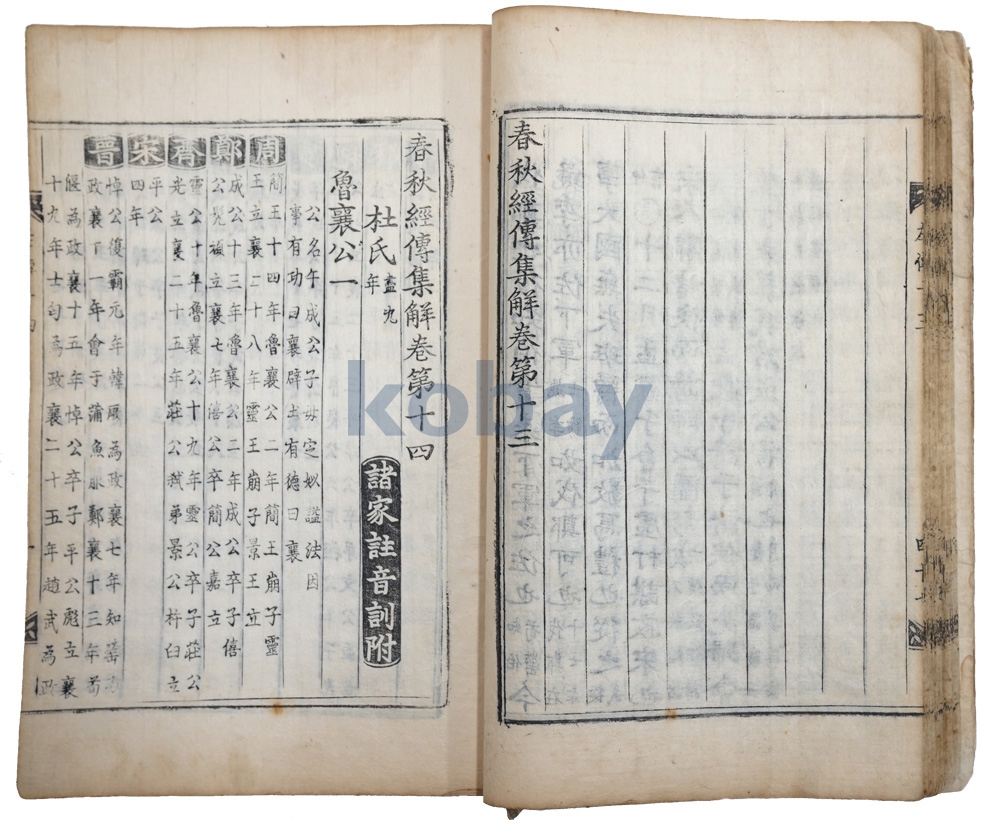 春秋經傳集解卷第十三
春秋經傳集解卷第十四
杜氏 盡九年 諸家註音訓附
魯襄公一
公名午成公子母定姒謚法因
事有功曰襄辟土有德曰襄
周
簡王十四年魯襄公二年簡王崩子靈
王立襄二十八年靈王崩子景王立
鄭
成公十三年魯襄公二年成公卒子僖
公髡頑立襄七年僖公卒簡公嘉立
齊
靈公十年魯襄公十九年靈公卒子莊公
光立襄二十五年莊公弑弟景公杵臼立
宋
平公
四年
晉
悼公復霸元年韓厥為政襄七年知罃
政襄 一年會于蒲魚服鄭襄十三年荀
偃為政襄十五年悼公卒子平公彪立襄
十九年士匄為政襄二十五年趙武為政
kobay